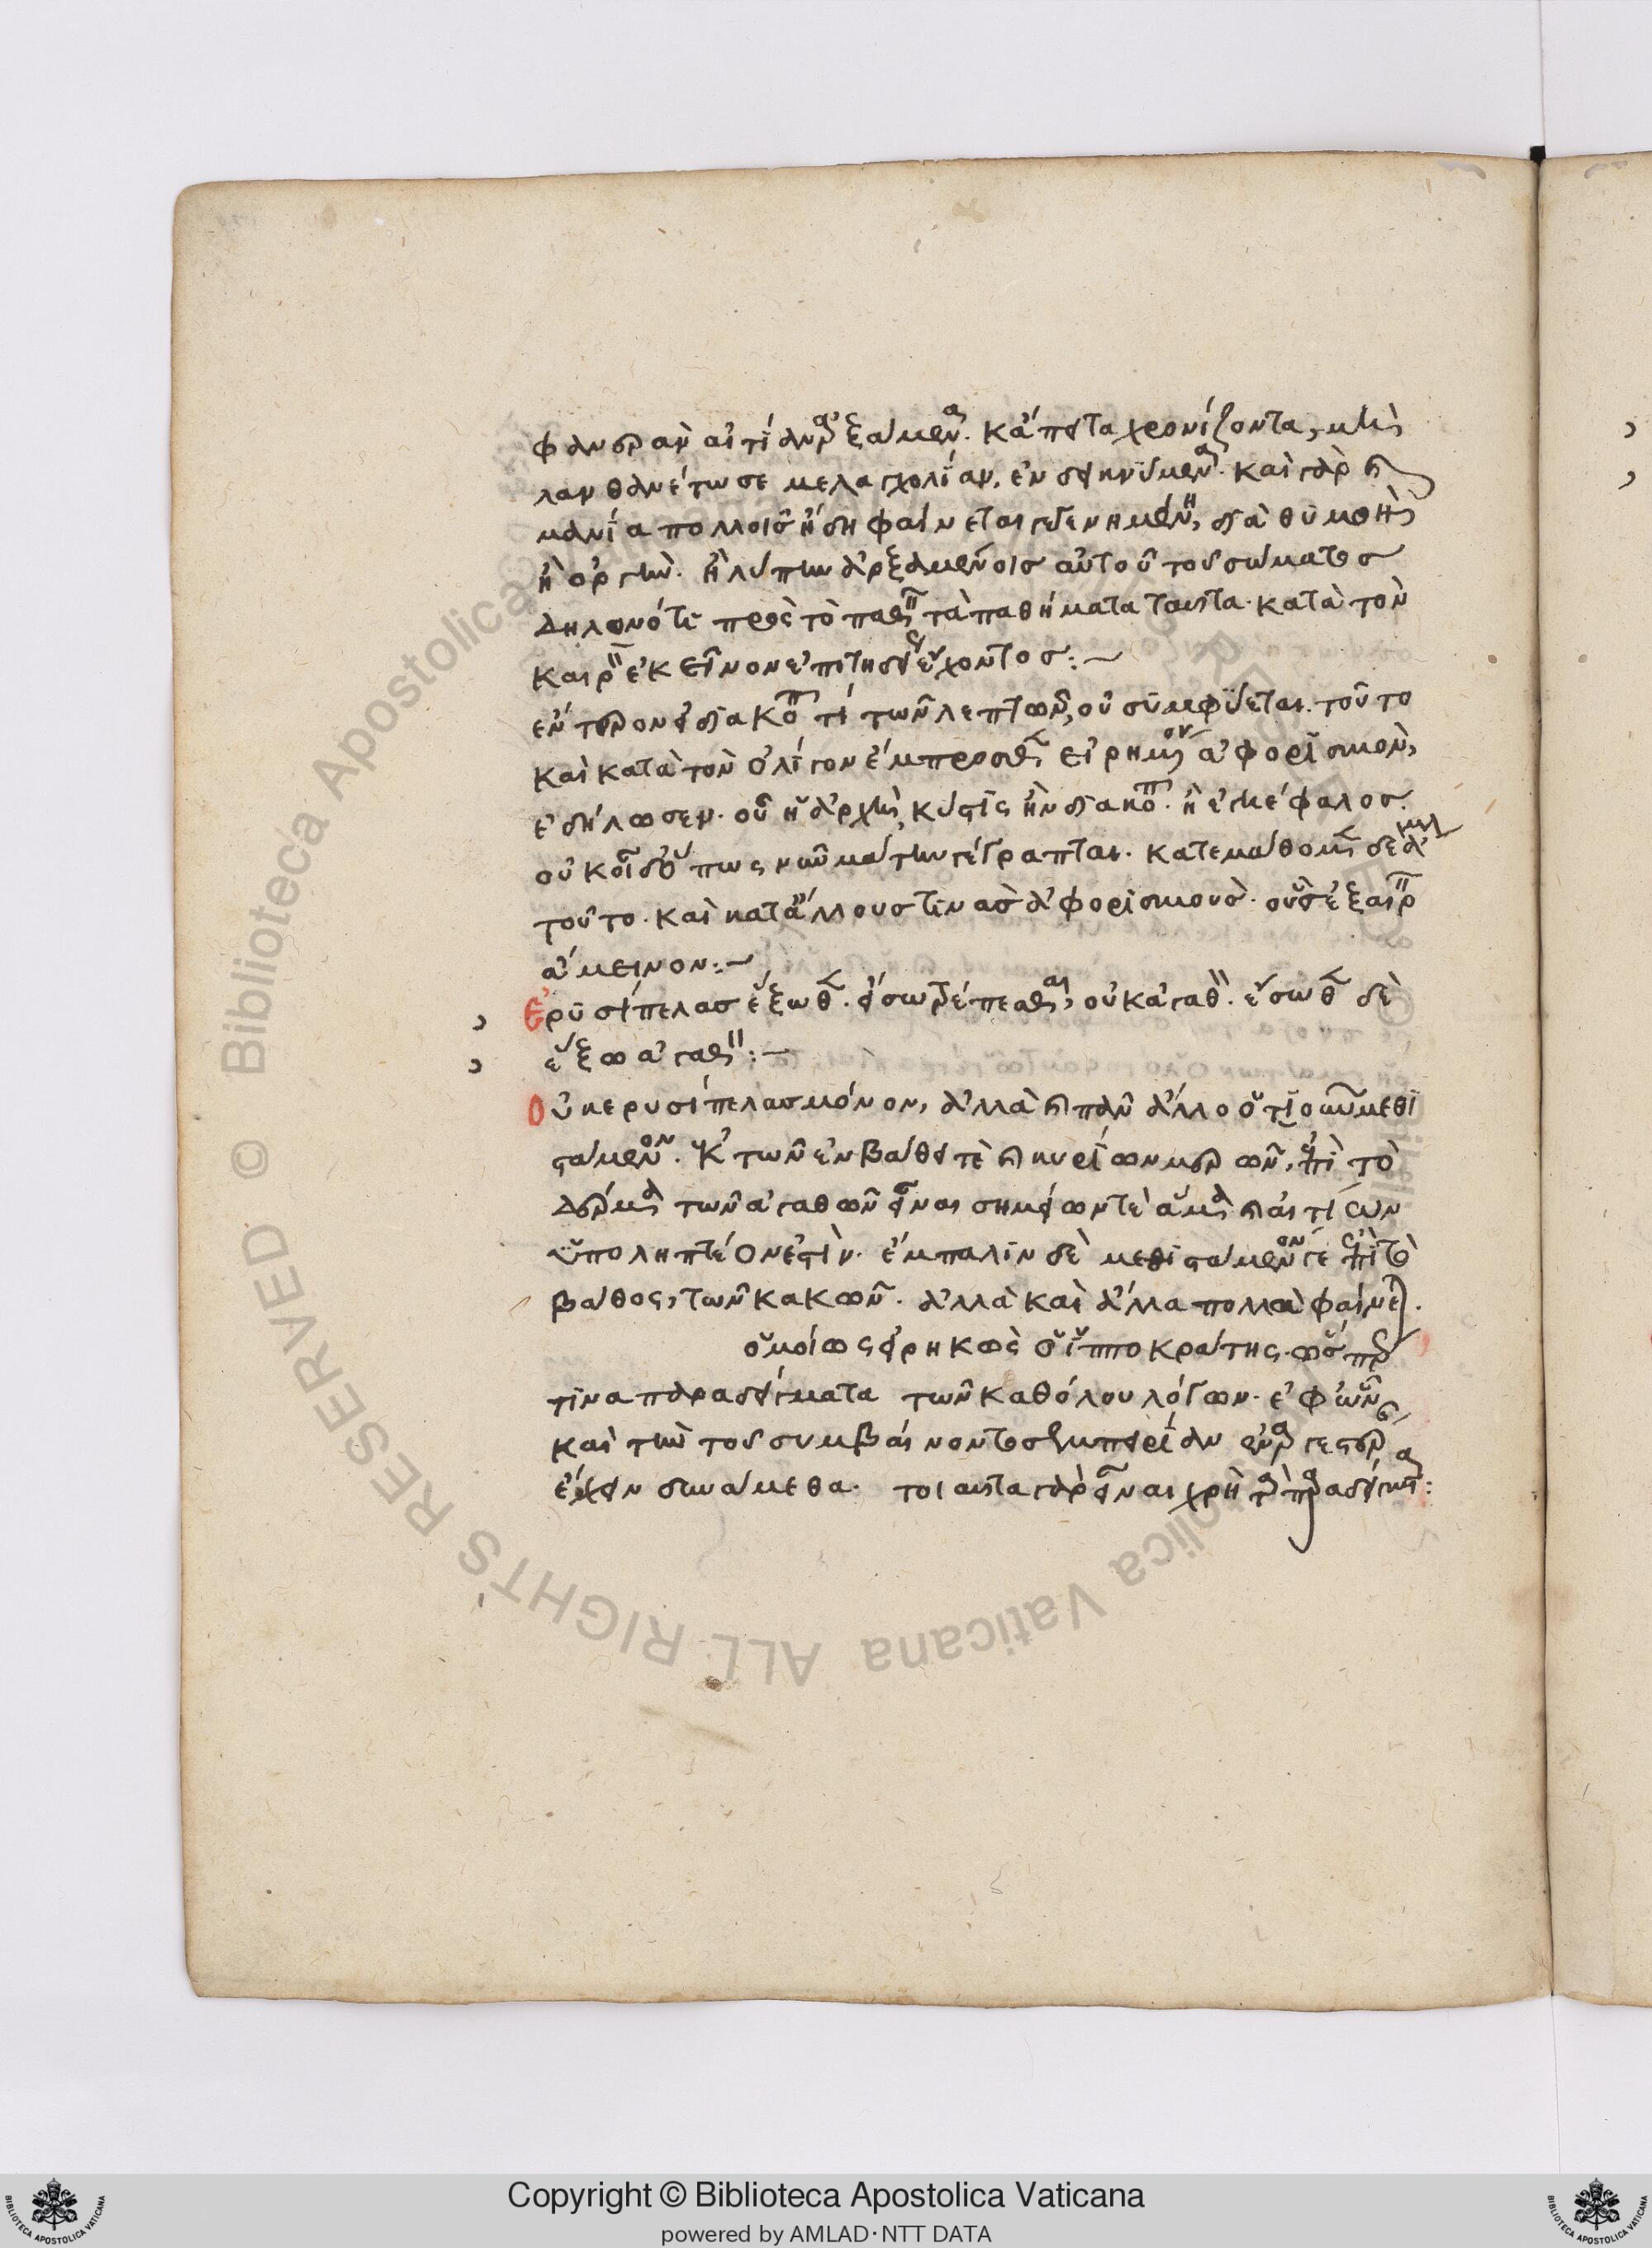 φανερὰν αἰτίαν ἀρξάμενα. κἄπειτα χρονίζοντα, μὴ
λανθανέτω σε μελαγχολίαν ἐνδεικνύμενα. καὶ γὰρ καὶ
μανία πολλοῖς ἤδη φαίνεται γεγενημένη, διὰ θυμὸν
ἢ ὀργὴν ἢ λύπην ἀρξαμένοις αὐτοῦ τοῦ σώματος
δηλονότι πρὸς τὸ παθεῖν τὰ παθήματα ταῦτα κατὰ τὸν
καιρὸν ἐκεῖνον ἐπιτηδείως ἔχοντος:~
ἔντερον εἰ διακοπῇ τί τῶν λεπτῶν, οὐ συμφύεται. τοῦτο
καὶ κατὰ τὸν ὀλίγον ἔμπροσθεν εἰρημένον ἀφορισμὸν,
ἐδήλωσεν. οὗ ἡ ἀρχὴ, κύστις ἢν διακοπῇ. ἢ ἐγκέφαλος.
οὔκουν οἶδ' ὅπως νῦν μάτην γέγραπται. κατεμάθομεν δὲ
τοῦτο καὶ κατ' ἄλλους τινὰς ἀφορισμοὺς. οὓς ἐξαιρεῖν
ἄμεινον:~
Ἐρυσίπελας ἔξωθεν εἴσω τρέπεσθαι, οὐκ ἀγαθόν. ἔσωθεν δὲ
ἔξω ἀγαθόν:~
Οὐκ ἐρυσίπελας μόνον, ἀλλὰ καὶ πᾶν ἄλλο ὁτιοῦν μεθι
στάμενον ἐκ τῶν ἐν βάθει τὲ καὶ κυρίων μερῶν, ἐπὶ τὸ
δέρμα τῶν ἀγαθῶν εἶναι σημείων τὲ ἅμα καὶ αἰτίων
ὑποληπτέον ἐστὶν. ἔμπαλιν δὲ μεθιστάμενόν γε ἐπὶ τὸ
βάθος, τῶν κακῶν. ἀλλὰ καὶ ἄλλα πολλὰ φαίνεται
ὁμοίως εἰρηκὼς ὁ ἱπποκράτης. ὥσπερ
τινα παραδείγματα τῶν καθόλου λόγων. ἐφ' ὧν
καὶ τὴν τοῦ συμβαίνοντος ἐμπειρίαν ἐναργεστέραν
ἔχειν δυνάμεθα. τοιαῦτα γὰρ εἶναι χρὴ τὰ παραδείγματα: